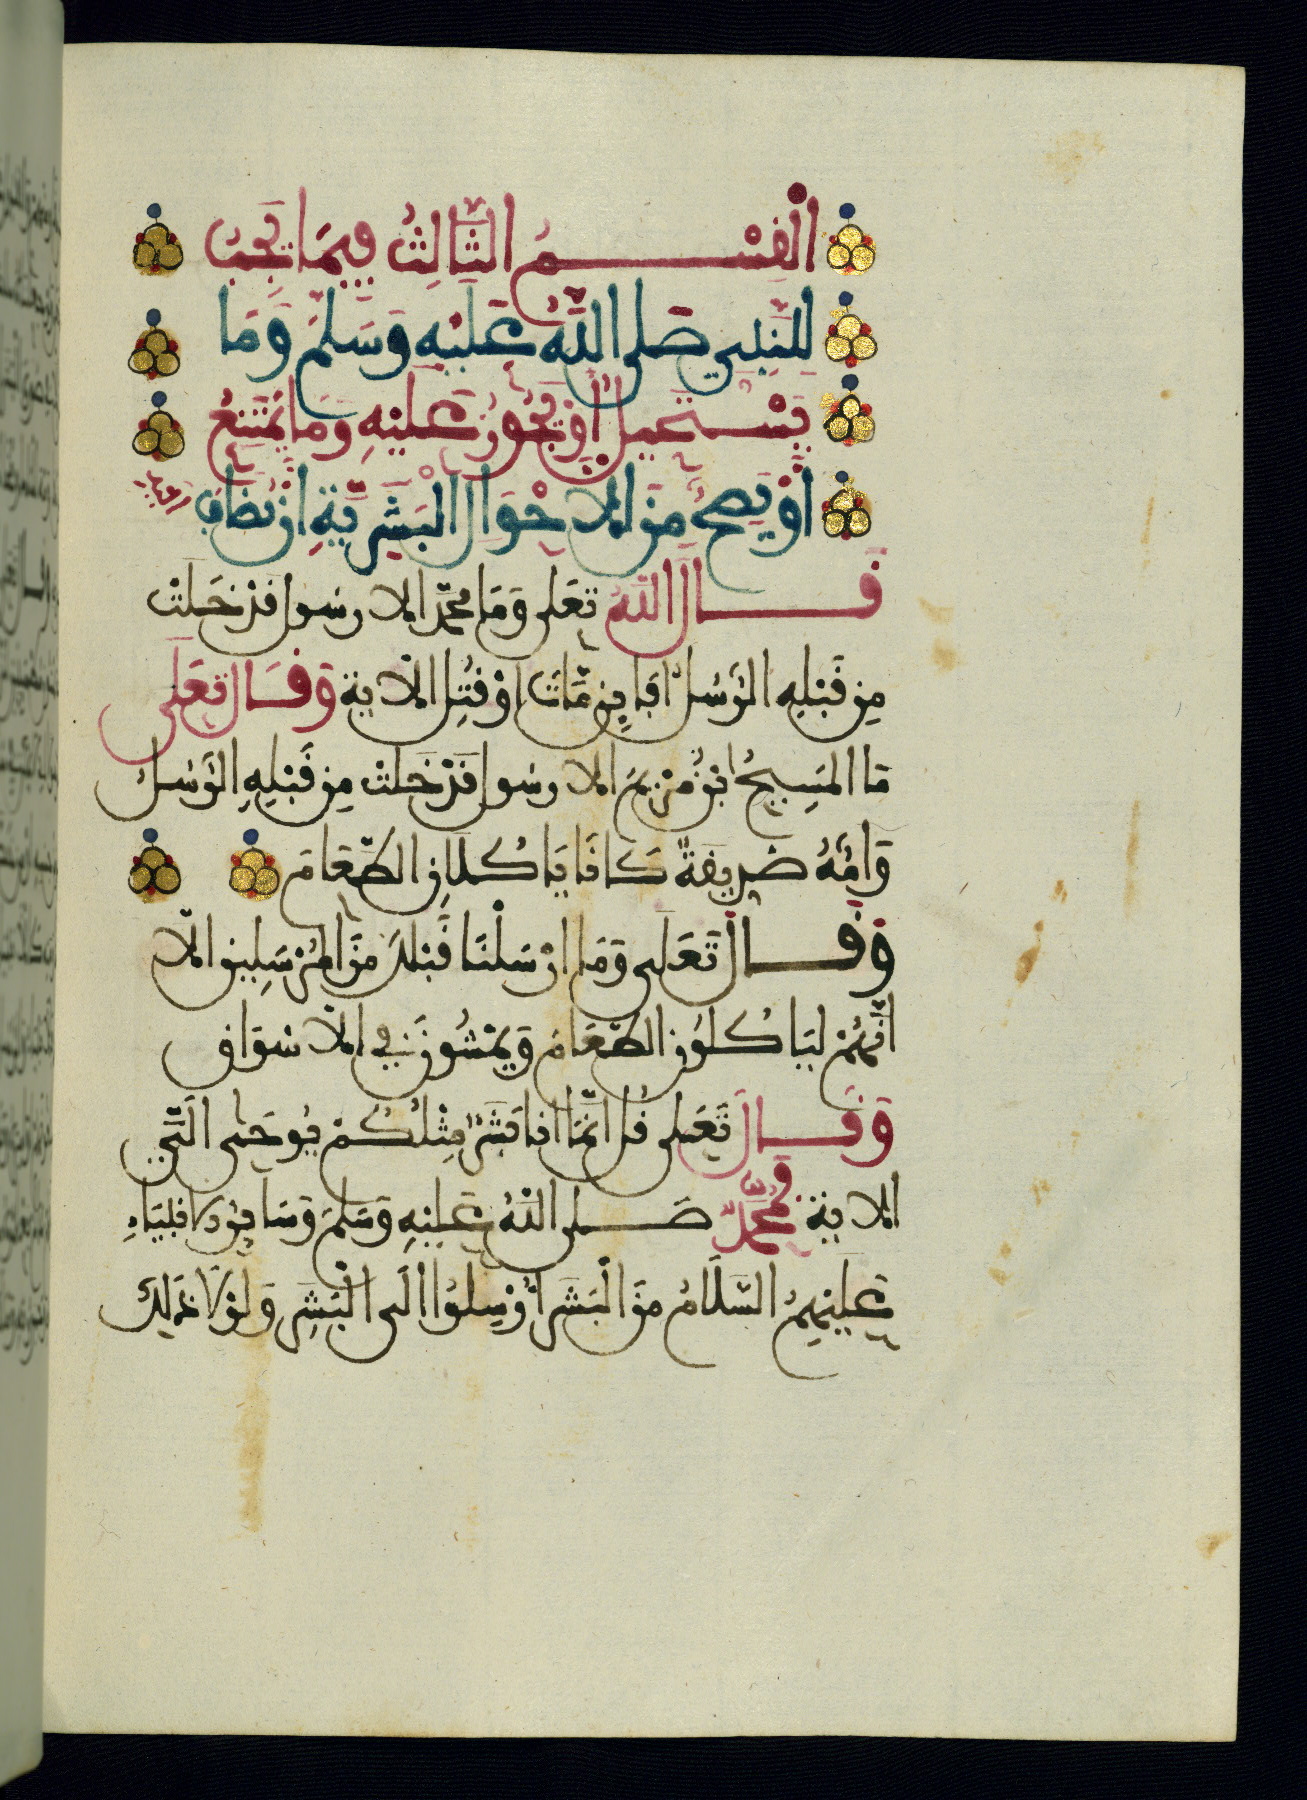 الْقِسْمُ الثَّالِثُ فِيمَا يَجِبُ
لِلنَّبِيِّ صَلَى اللَّهُ عَلَيْهِ وَسَلَّمَ وَمَا
يَسْتَحِيلُ أَوْ يَجُوزُ عَلَيْهِ وَمَا يَمْتَنِعُ
أَوْ يَصِحُّ مِنَ الْأَحْوَالِ الْبَشَرِيَّةِ أَنْ يُضَافَ
قَالَ اللَّهُ تَعَلَى وَمَا مُحَمَّدٌ الَّا رَسُولٌ قَدْ خَلَتْ
مِن قَبْلِهِ الرُّسُلُ أَفَإِين مَّاتَ أَوْ قُتِلَ الْآيَةَ وَقَالَ تَعَلَى
مَا الْمَسِيحُ ابْنُ مَرْيَمَ الَّا رَسُولٌ قَدْ خَلَتْ مِن قَبْلِهِ الرُّسُلُ
وَأُمُّهُ صِدِّيقَةٌ كَانَا يَاكُلَانِ الطَّعَامَ
وَقَالَ تَعَلَى وَمَا أَرْسَلْنَا قَبْلَكَ مِنَ الْمُرْسَلِينَ الَّا
انَّهُمْ لَيَاكُلُونَ الطَّعَامَ وَيَمْشُونَ فِي الْأَسْوَاقِ
وَقَالَ تَعَلَى قُلِ انَّمَا أَنَا بَشَرٌ مِثْلُكُمْ يُوحَى الَيَّ
الْآيَةَ فَمُحَمَّدٌ صَلَى اللَّهُ عَلَيْهِ وَسَلَّمَ وَسَايِرُ الْأَنْبِيَاءِ
عَلَيْهِمُ السَّلَامُ مِنَ الْبَشَرِ أُرْسِلُوا الَى الْبَشَرِ وَلَوْلَا ذَلِكَ